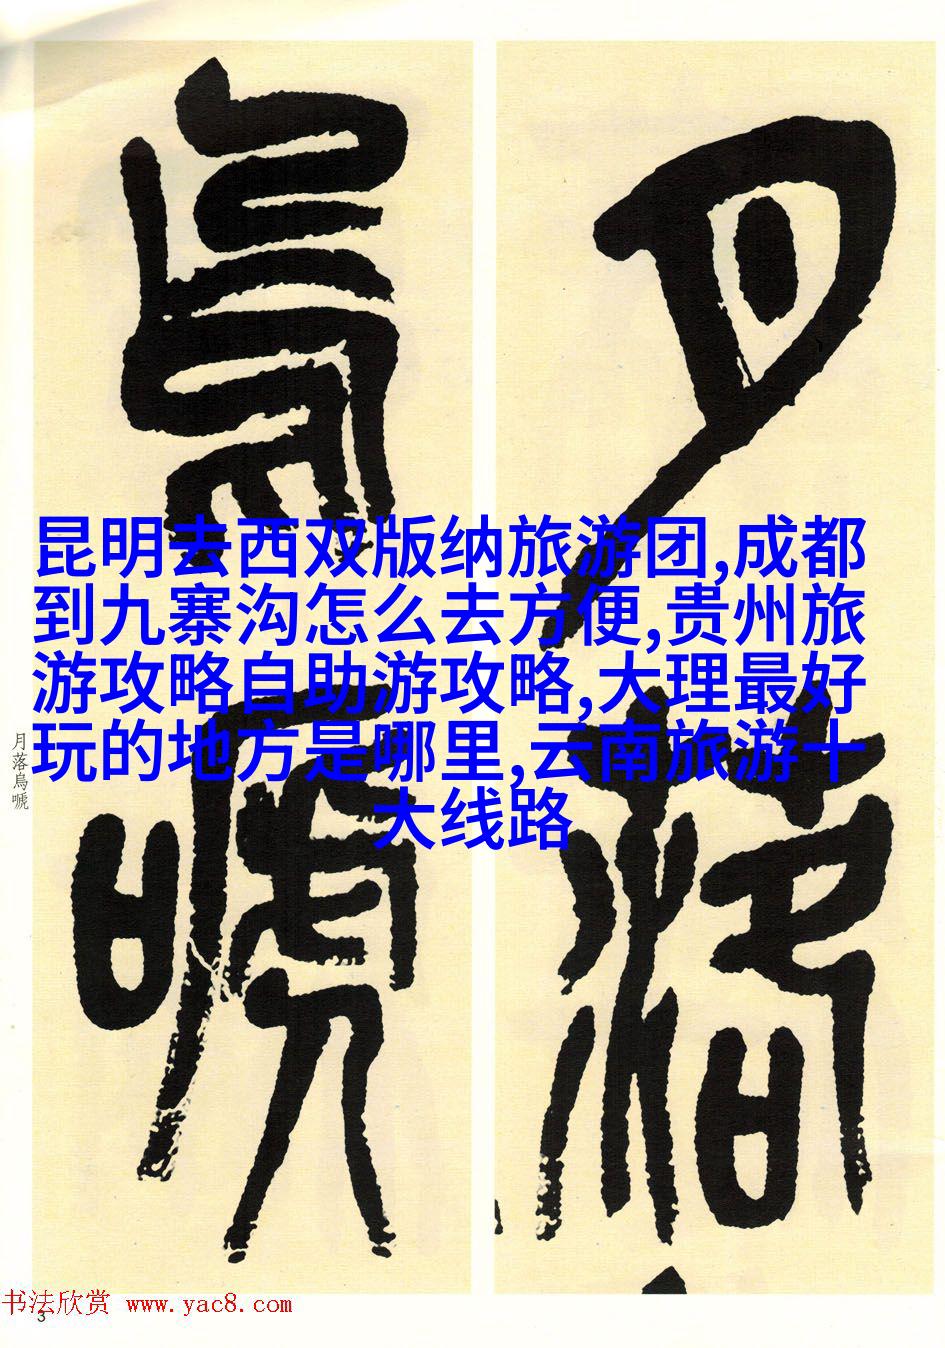 月落
烏嗁
昆明去西双版纳旅游团,成都
到九寨沟怎么去方便,贵州旅
游攻略自助游攻略,大理最好
玩的地方是哪里,云南旅游十
大线路
月落烏嗁
书法欣赏 www.yac8.com
3